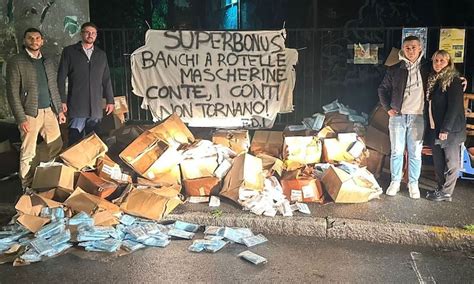 SUPERBONUS
BANCHI A ROTELLE
MASCHERINE
CONTE, I CONTI
NON TORNANO!
F.D.I.